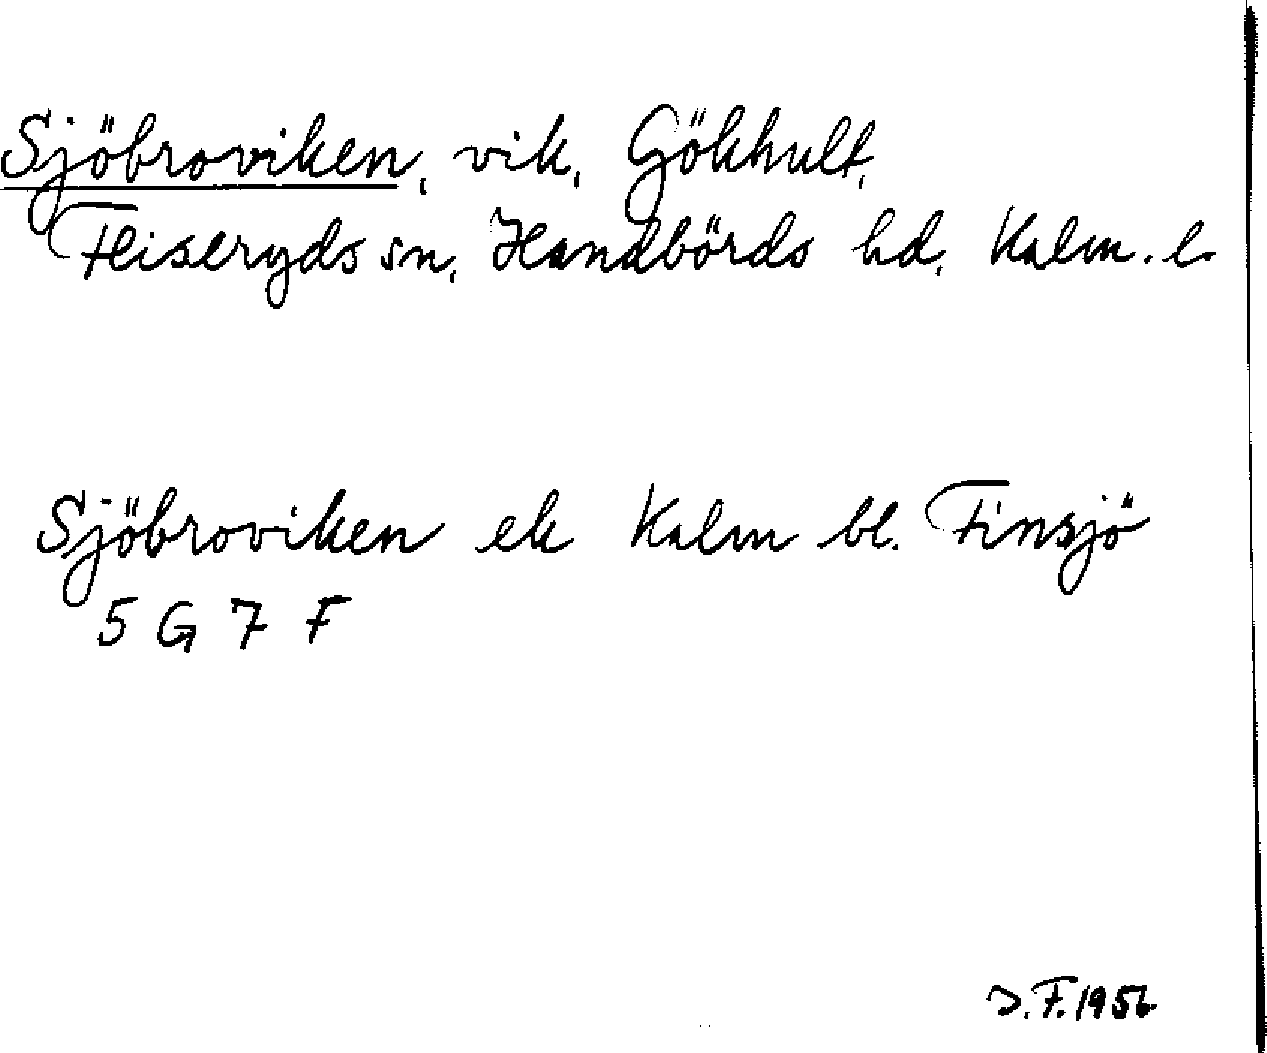 Sjöbroviken, vik, Gökhult,
Fliseryds sn, Handbörds hd, Kalm. l.
Sjöbroviken ek Kalm bl. Finsjö
5 G 7 F
J.F. 1956